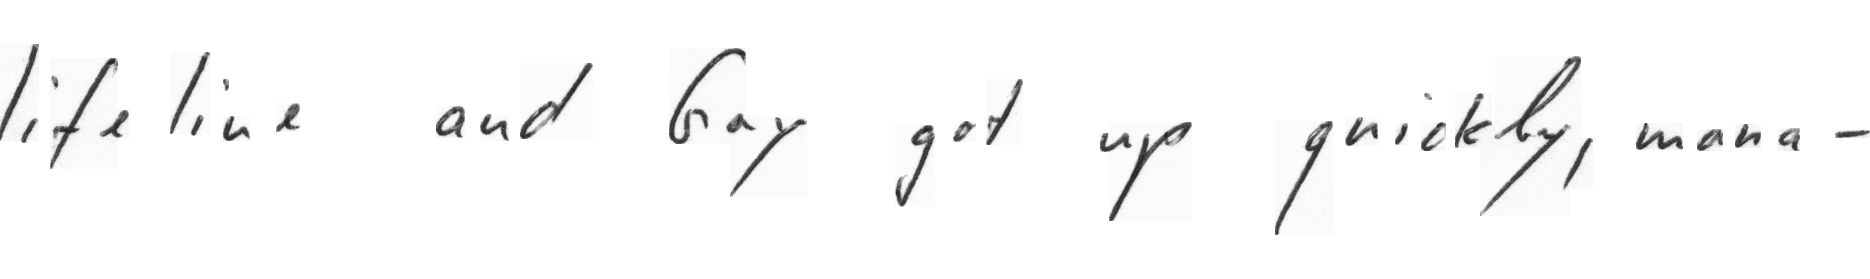 lifeline and Gay got up quickly, mana-